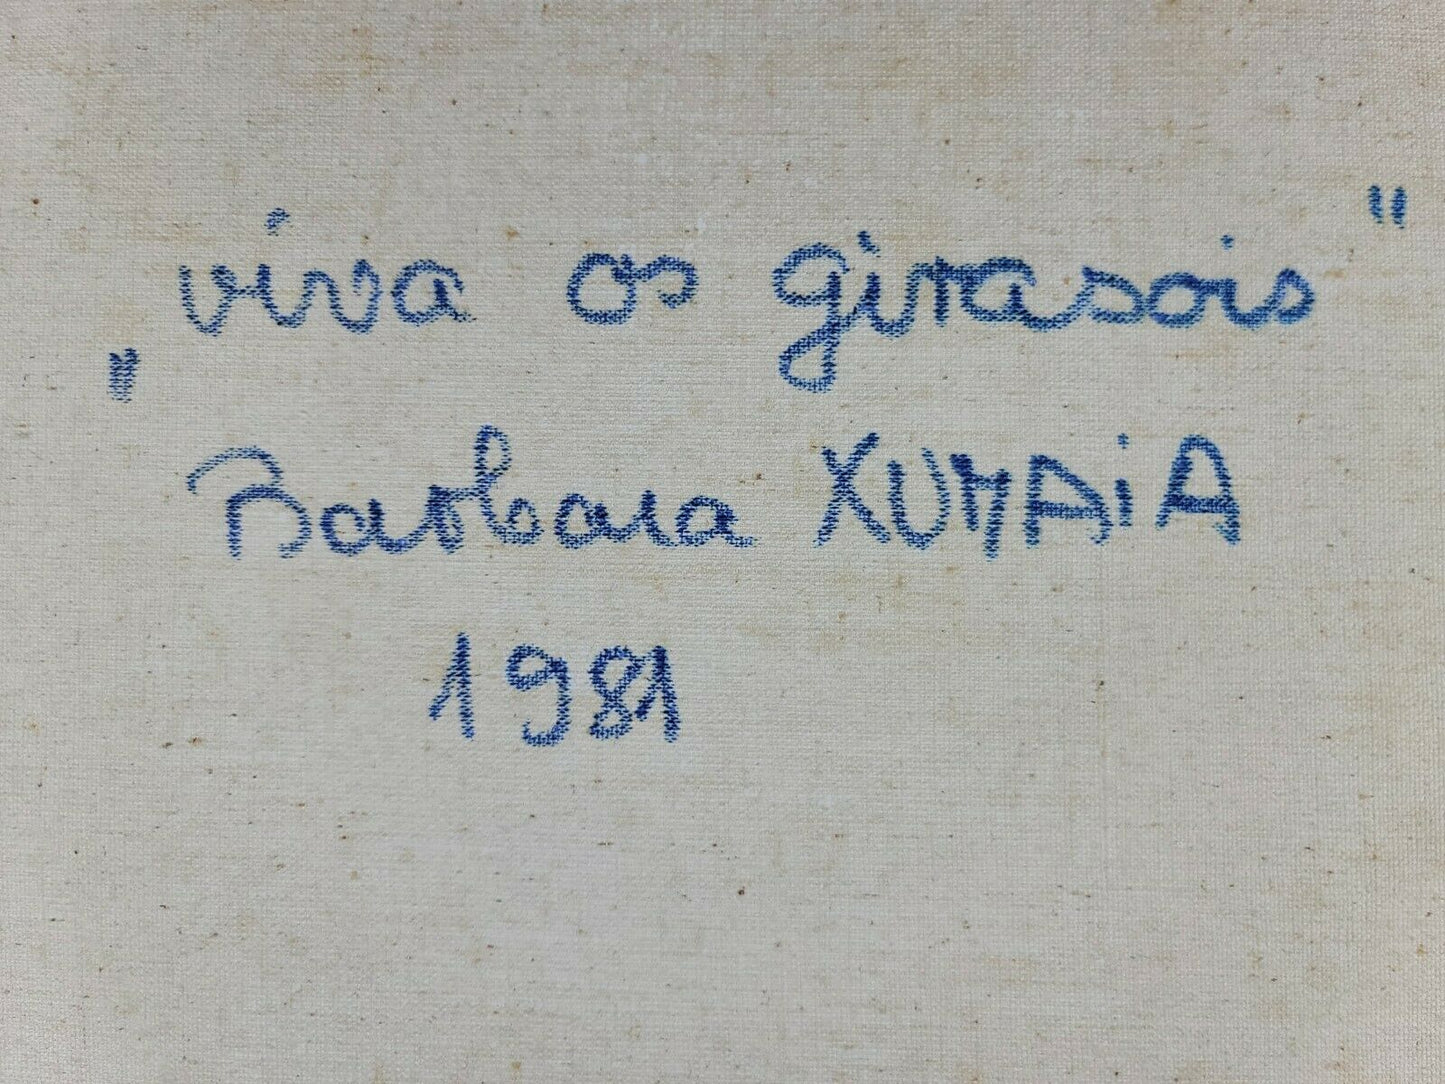 „viva os girasois"
Barbara XUMAiA
1981